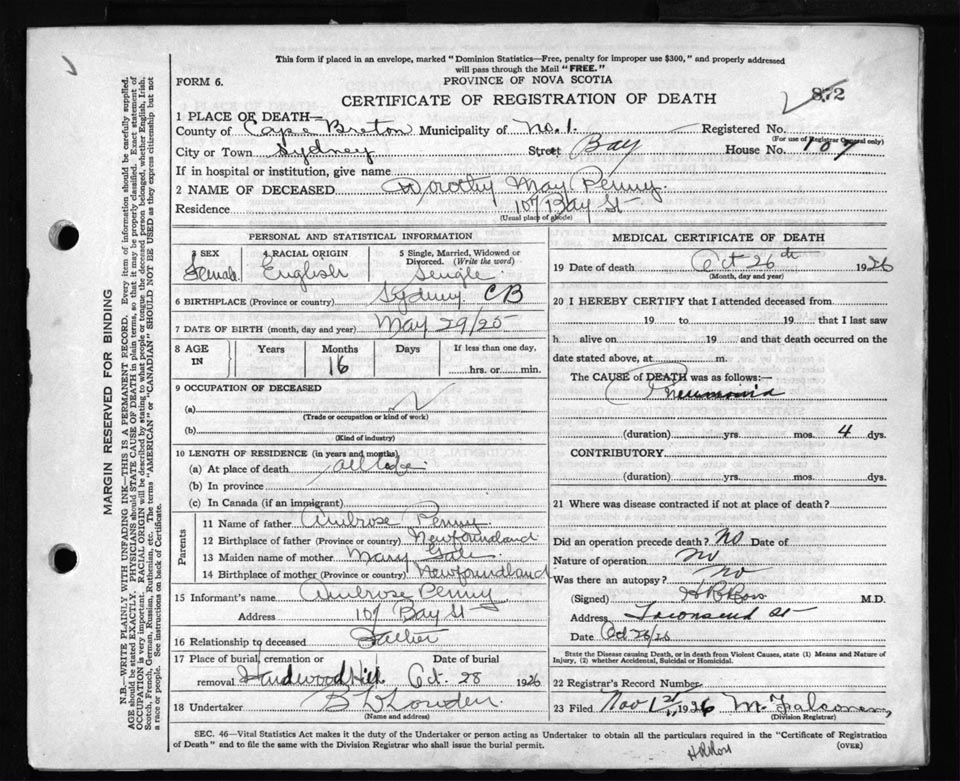 This form if placed in an envelope, marked "Dominion Statistics—Free, penalty for improper use $300," and properly addressed
will pass through the Mail "FREE."
FORM 6.
PROVINCE OF NOVA SCOTIA
CERTIFICATE OF REGISTRATION OF DEATH
872
1 PLACE OF DEATH—
County of Cape Breton Municipality of No. 1. Registered No.
(For use of Registrar General only)
City or Town Sydney Street Bay House No. 107
If in hospital or institution, give name
2 NAME OF DECEASED Dorothy May Penny.
Residence 107 Bay St
(Usual place of abode)
PERSONAL AND STATISTICAL INFORMATION
3 SEX Female
4 RACIAL ORIGIN English
5 Single, Married, Widowed or Divorced. (Write the word) Single
6 BIRTHPLACE (Province or country) Sydney CB
7 DATE OF BIRTH (month, day and year) May 29/25
8 AGE IN Years Months Days If less than one day,
16 hrs. or min.
9 OCCUPATION OF DECEASED
(a)
(Trade or occupation or kind of work)
(b)
(Kind of industry)
10 LENGTH OF RESIDENCE (in years and months)
(a) At place of death all life.
(b) In province
(c) In Canada (if an immigrant)
Parents
11 Name of father Ambrose Penny.
12 Birthplace of father (Province or country) Newfoundland
13 Maiden name of mother Mary Gale
14 Birthplace of mother (Province or country) Newfoundland
15 Informant's name Ambrose Penny
Address 107 Bay St
16 Relationship to deceased Father
17 Place of burial, cremation or removal Hardwood Hill
Date of burial Oct. 28 1926
18 Undertaker
(Name and address)
MEDICAL CERTIFICATE OF DEATH
19 Date of death Oct 26th 1926
(Month, day and year)
20 I HEREBY CERTIFY that I attended deceased from
19 to 19 that I last saw
h alive on 19 and that death occurred on the
date stated above, at m.
The CAUSE of DEATH was as follows:—
Pneumonia
(duration) yrs. mos. 4 dys.
CONTRIBUTORY
(duration) yrs. mos. dys.
21 Where was disease contracted if not at place of death?
Did an operation precede death? No Date of
Nature of operation no
Was there an autopsy? no
(Signed) H R Ross M.D.
Address Townsend St
Date Oct 26/26
State the Disease causing Death, or in death from Violent Causes, state (1) Means and Nature of
Injury, (2) whether Accidental, Suicidal or Homicidal.
22 Registrar's Record Number
23 Filed Nov 1st, 1926
(Division Registrar)
SEC. 46—Vital Statistics Act makes it the duty of the Undertaker or person acting as Undertaker to obtain all the particulars required in the "Certificate of Registration
of Death" and to file the same with the Division Registrar who shall issue the burial permit.
(OVER)
MARGIN RESERVED FOR BINDING
N.B.—WRITE PLAINLY WITH UNFADING INK—THIS IS A PERMANENT RECORD. Every item of information should be carefully supplied.
AGE should be stated EXACTLY. PHYSICIANS should STATE CAUSE OF DEATH in plain terms, so that it may be properly classified. Exact statement of
OCCUPATION is very important. RACIAL ORIGIN will be described by stating to what people or tongue the deceased person belonged, whether English, Irish,
Scotch, French, German, Russian, Ruthenian, etc. The terms "AMERICAN" or "CANADIAN" SHOULD NOT BE USED as they express citizenship but not
a race or people. See instructions on back of Certificate.